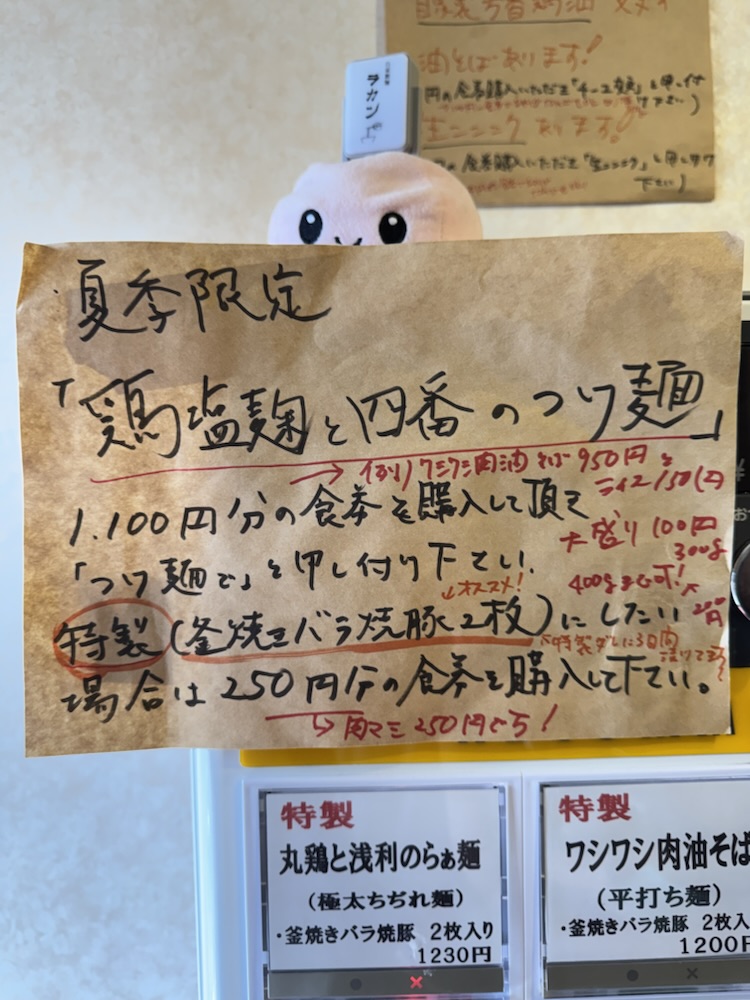 自家製
油そばあります!
円の食券購入いただき「チーズ
と申し付
下さい)
生ニンニクあります!
食券購入いただき「生ニンニク」と申し付け
下さい)
ラカン
夏季限定
「鶏塩麹と四番のつけ麺」
→例)ワシワシ肉油そば950円と
ライス150円
1.100円分の食券を購入して頂き
大盛り100円
300g
「つけ麺で」と申し付け下さい.
400gまで可!
↓オススメ!
200円
特製(釜焼きバラ焼豚2枚)にしたい
特製ダレに3日間
漬けてます
場合は250円分の食券を購入して下さい。
→肉マシ250円でも!
特製
丸鶏と浅利のらぁ麺
(極太ちぢれ麺)
・釜焼きバラ焼豚 2枚入り
1230円
特製
ワシワシ肉油そば
(平打ち麺)
・釜焼きバラ焼豚 2枚入
1200円